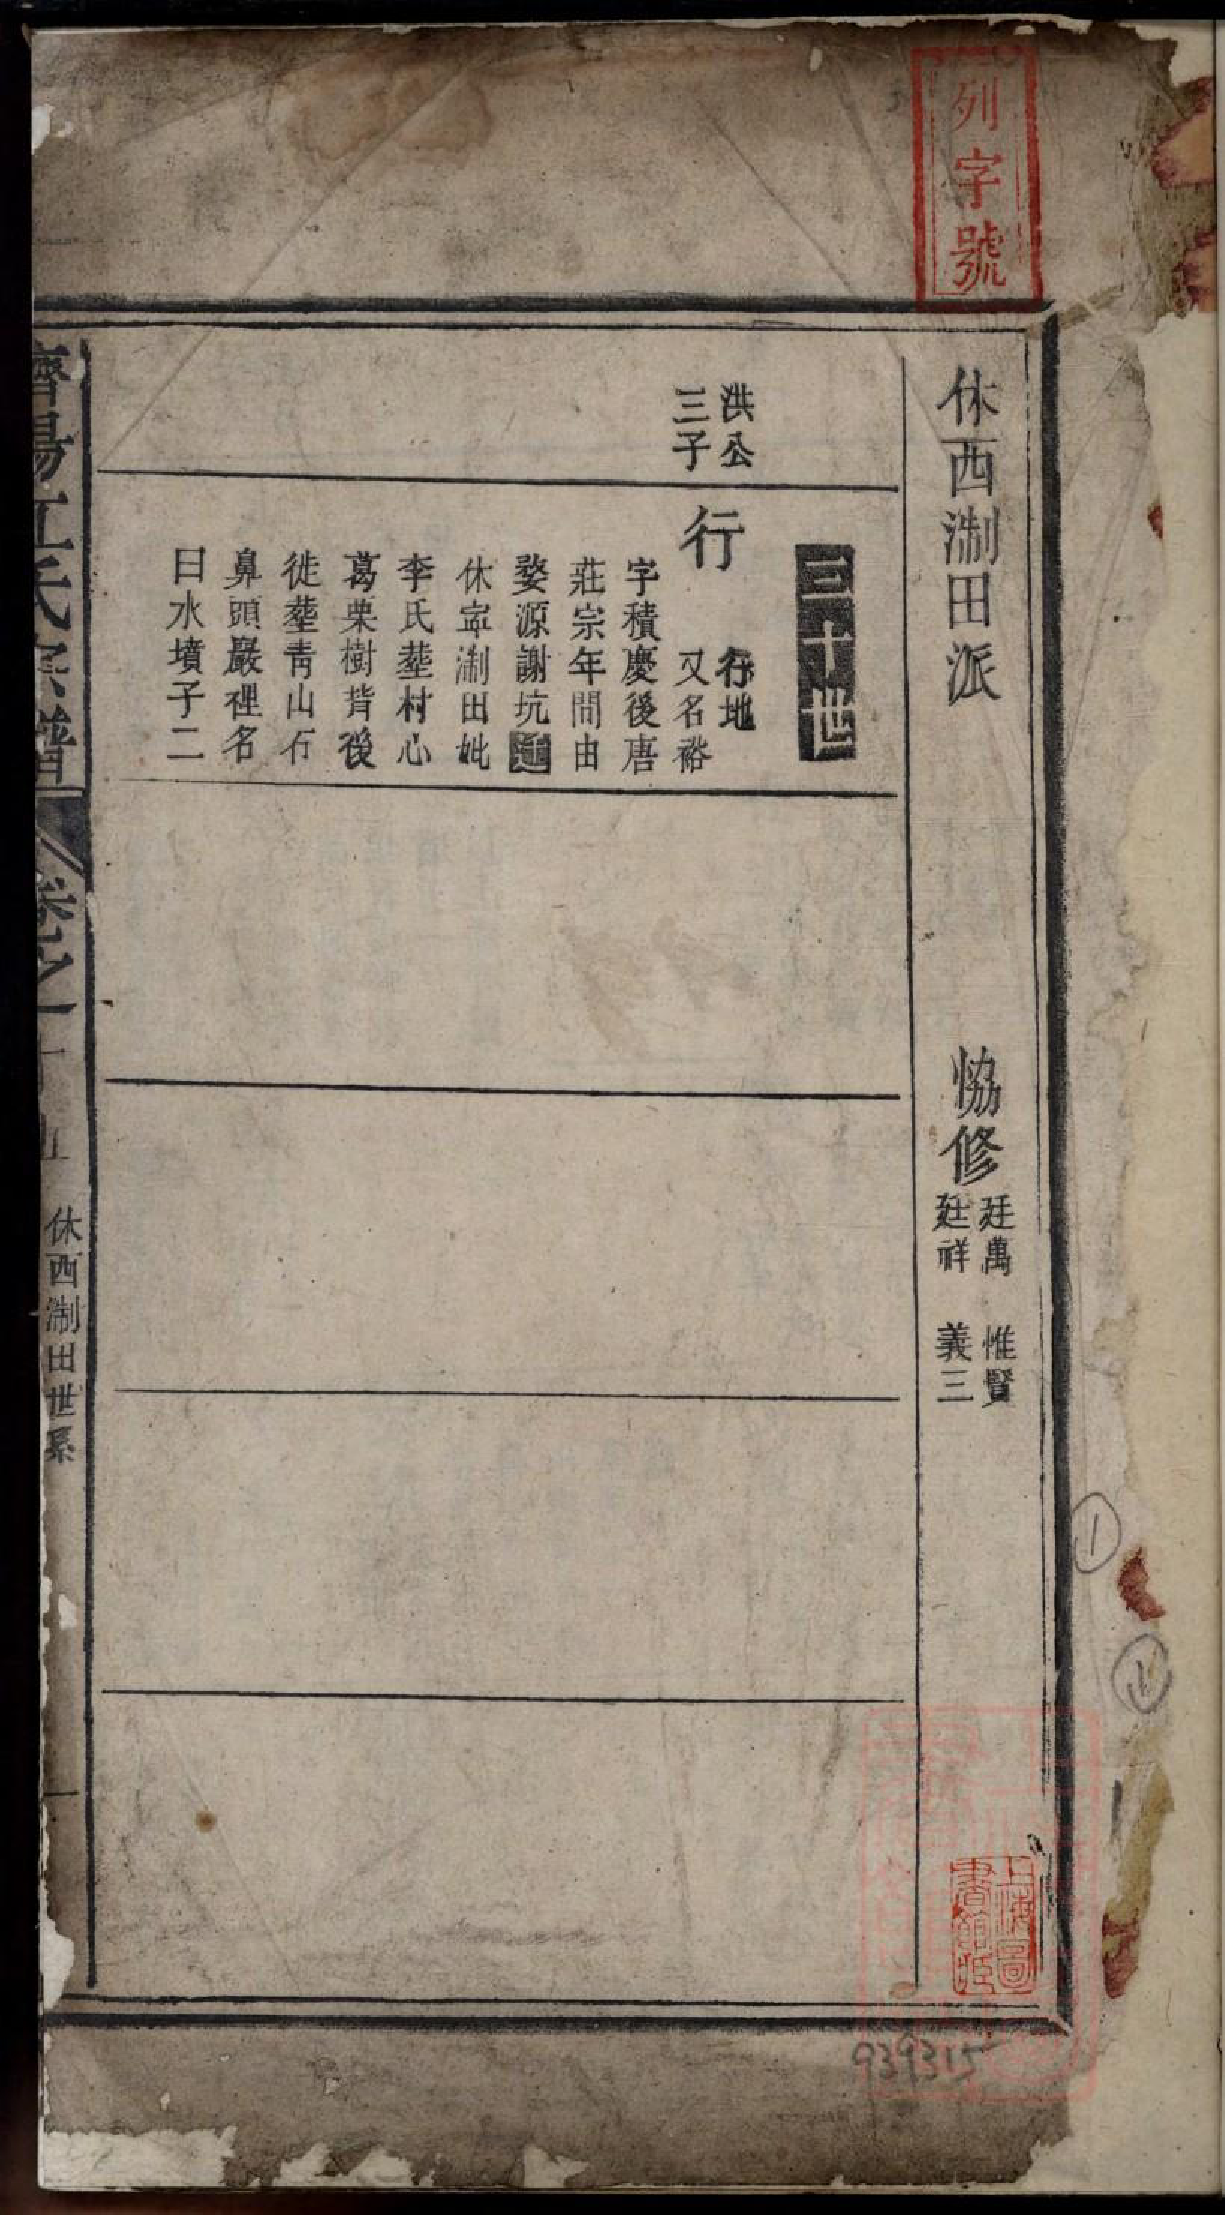 列字號
休西淛田派
恊修
廷萬 惟賢
廷祥 義三
三十世
洪公
三子
行
行地
又名裕
字積慶後唐
莊宗年間由
婺源謝坑遷
休寧淛田妣
李氏塟村心
葛栗樹背後
徙塟青山石
鼻頭巖裡名
曰水墳子二
濟陽江氏宗譜
卷之一十九
休西淛田世系
一
上海圖書館藏
939315
1
11